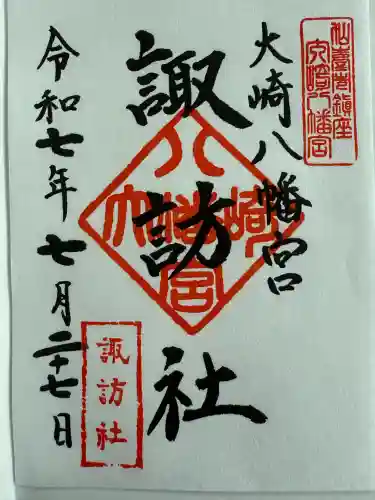 仙臺鎮座
大崎八幡宮
大崎八幡宮
諏訪社
大崎八幡宮
諏訪社
令和七年七月二十七日